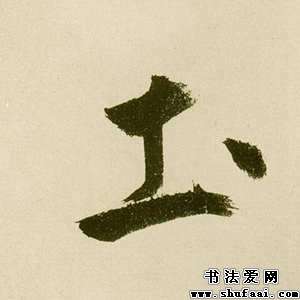 圡
书法爱网
www.shufaai.com